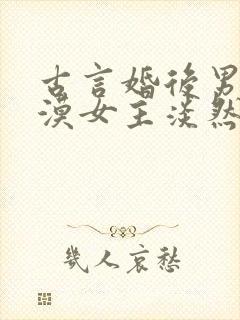 古言婚后男
漠女主淡然
幾人哀愁